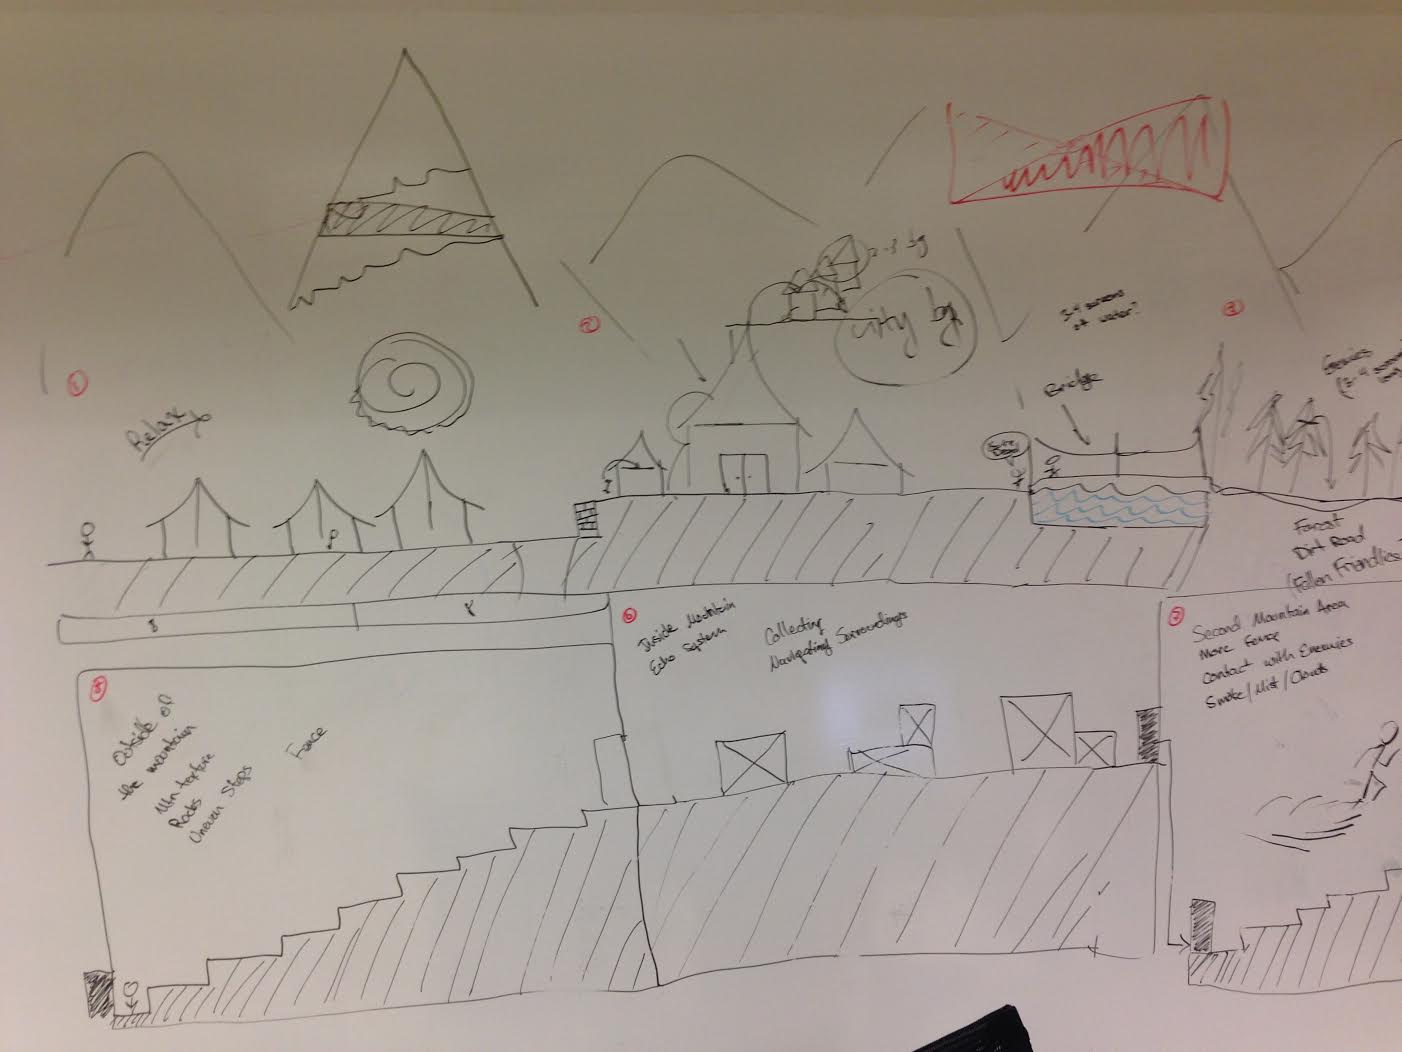 1
Relax
2
2-3 bg
city bg
3-4 screens
of water?
Bridge
3
Forest
Dirt Road
(Fallen Friendlies
5
Outside of
the mountain
Mtn texture
Rocks
Uneven Steps
Force
6
Inside Mountain
Echo System
Collecting
Navigating Surroundings
7
Second Mountain Area
More Force
Contact with Enemies
Smoke/Mist/Clouds